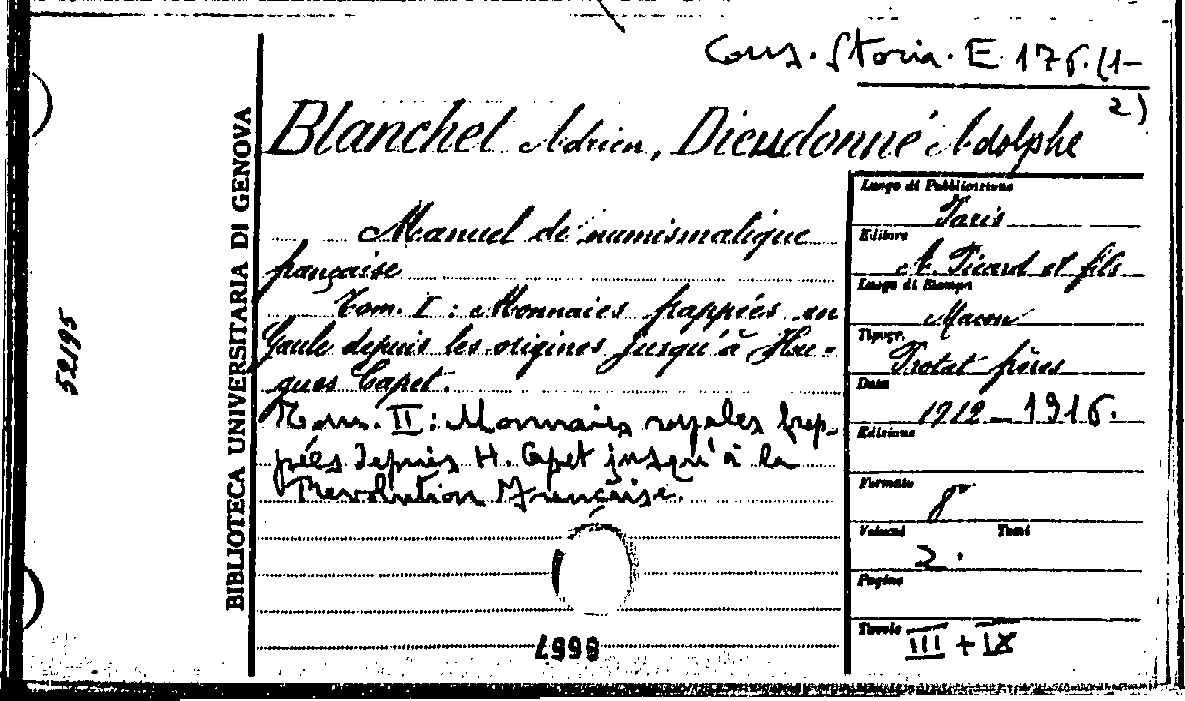 Cons. Storia. E 176. (1-
2)
Blanchet Adrien, Dieudonné Adolphe
Manuel de numismatique
française
Tom. I : Monnaies frappées en
Gaule depuis les origines jusqu'à Hu-
gues Capet.
Tom. II : Monnaies royales frap-
pées depuis H. Capet jusqu'à la
Revolution Française.
Luogo di Pubblicazione
Paris
Editore
A. Picard et fils
Luogo di Stampa
Macon
Tipogr.
Protat frères
Data
1912 - 1916.
Edizione
Formato
8°
Volumi Tomi
2.
Pagine
Tavole
III + IX
BIBLIOTECA UNIVERSITARIA DI GENOVA
52195